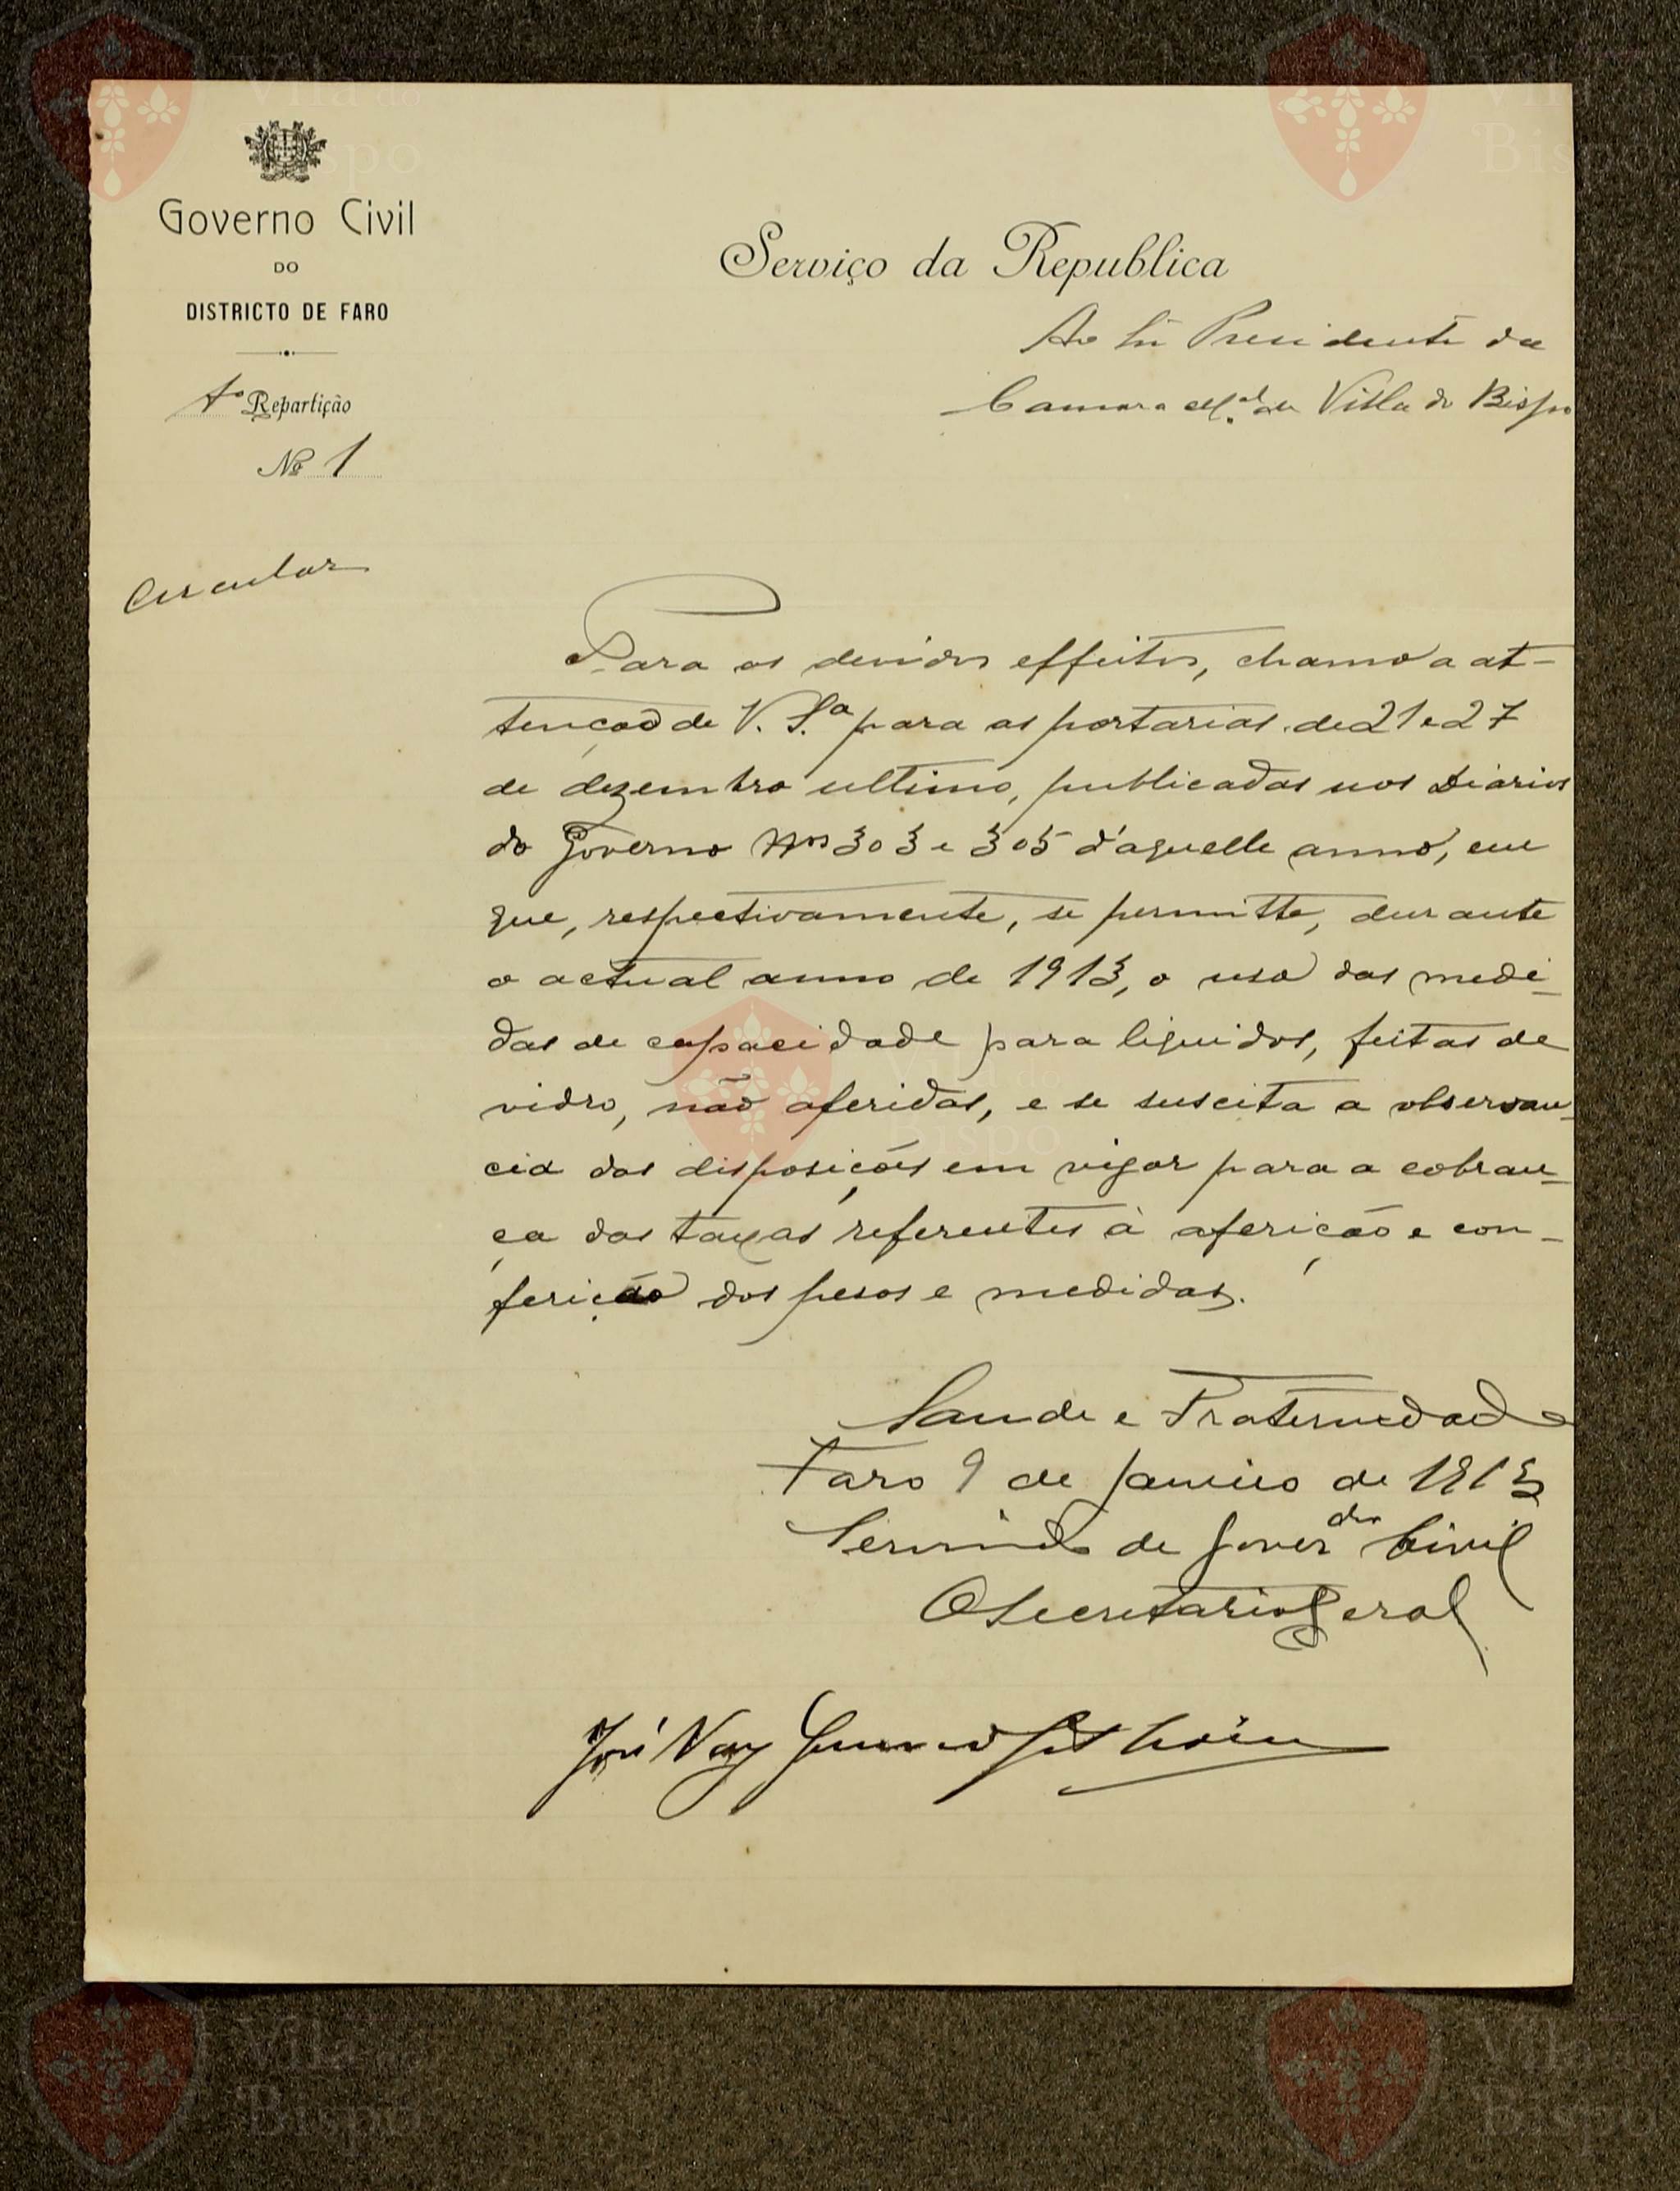 Governo Civil
DO
DISTRICTO DE FARO
1ª Repartição
Nº 1
Circular
Serviço da Republica
Ao Sr. Presidente da
Camara M.al de Villa do Bispo
Para os devidos effeitos, chamo a at-
tenção de V. S.ª para as portarias de 21 e 27
de dezembro ultimo, publicadas nos Diarios
do Governo Nos 303 e 305 d'aquelle anno, em
que, respectivamente, se permitte, durante
o actual anno de 1913, o uso das medi-
das de capacidade para liquidos, feitas de
vidro, não aferidas, e se suscita a observan-
cia das disposições em vigor para a cobran-
ça das taxas referentes à aferição e con-
ferição dos pesos e medidas.
Saude e Fraternidade
Faro 9 de Janeiro de 1913
Servindo de Goverdor Civil
O Secretario Geral
José Vaz
Vila do
Bispo